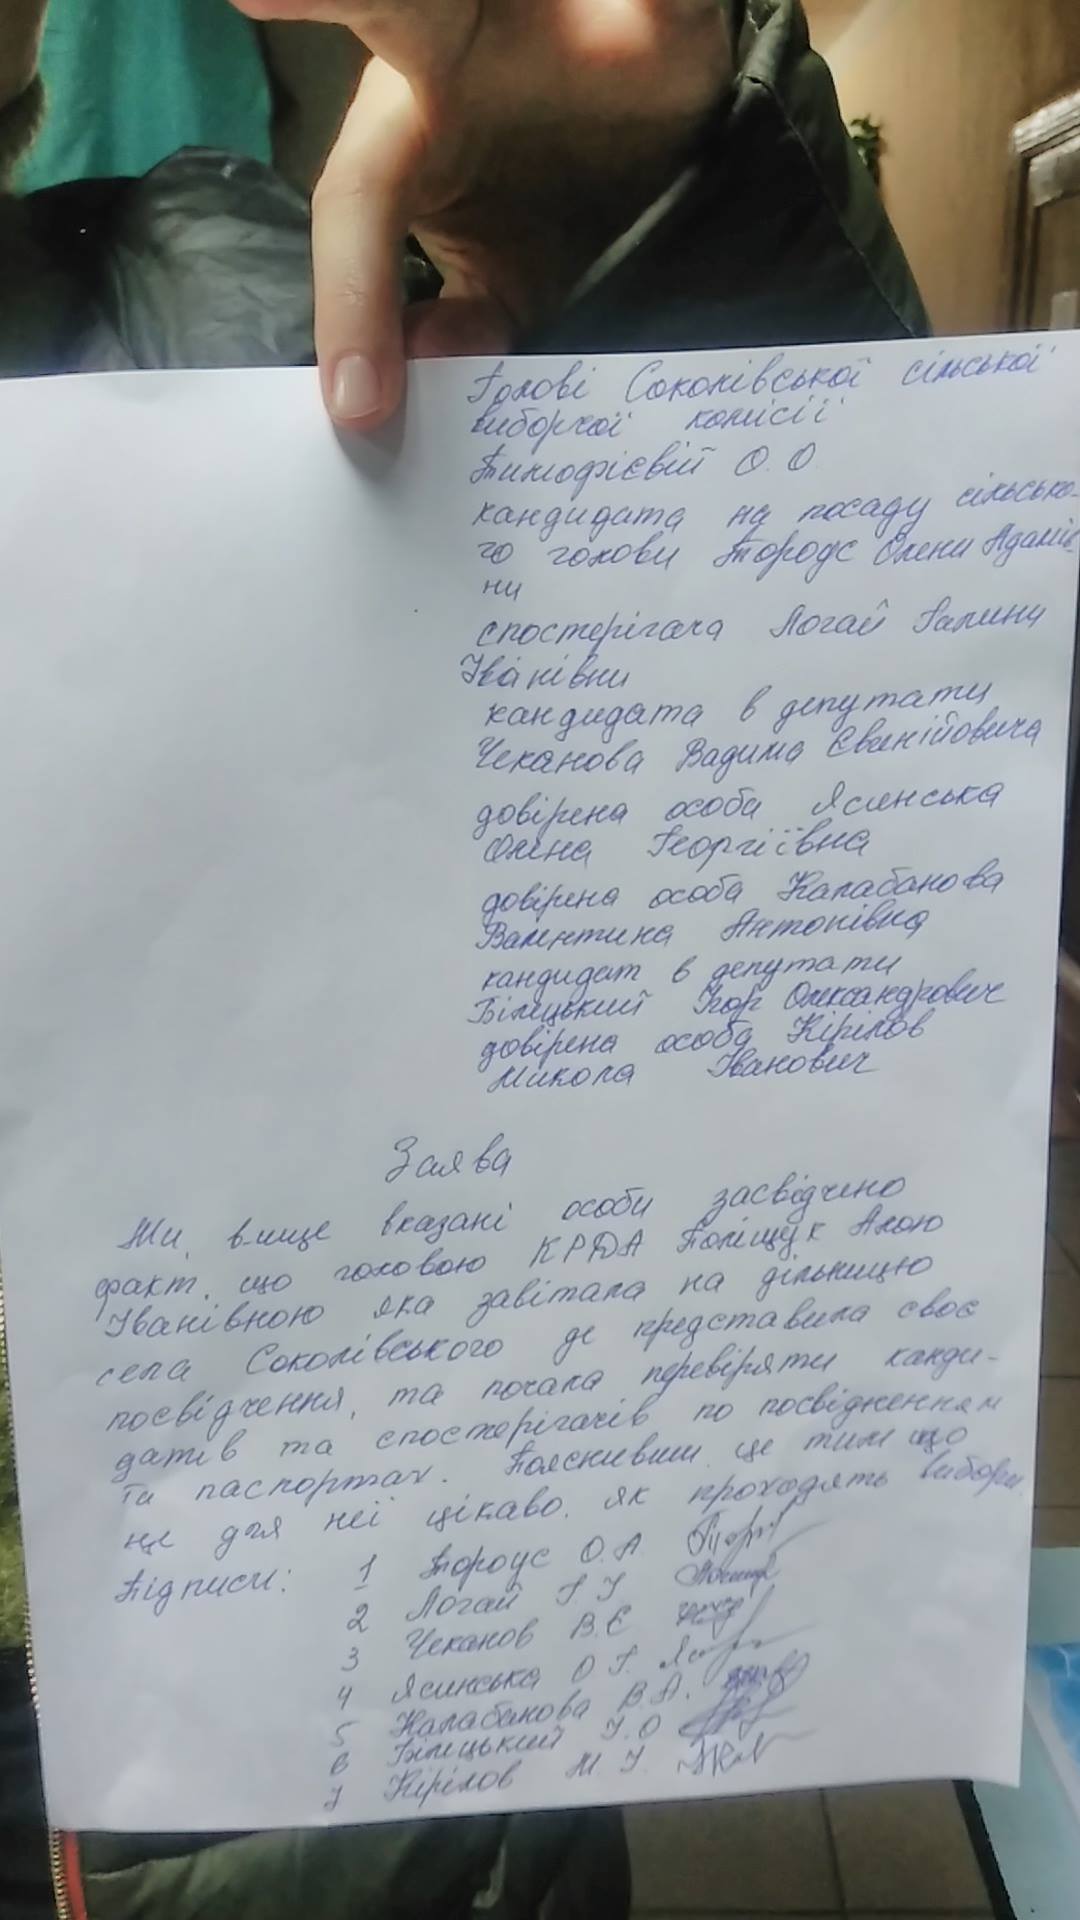 Голові Соколівської сільської
виборчої комісії
Тимофієвій О. О
кандидата на посаду сільсько-
го голови Тороус Олени Адамів-
ни
спостерігача Логай Галини
Іванівни
кандидата в депутати
Чеканова Вадима Євгнійовича
довірена особа Ясинська
Олена Георгіївна
довірена особа Калабанова
Валентина Антонівна
кандидат в депутати
Білицький Ігор Олександрович
довірена особа Кірілов
Микола Іванович
Заява
Ми, вище вказані особи засвідчено
факт, що головою КРДА Поліщук Алою
Іванівною яка завітала на дільницю
села Соколівського де представила своє
посвідчення, та почала перевіряти канди-
датів та спостерігачів по посвідченням
та паспортах. Пояснивши це тим що
це для неї цікаво, як проходять вибори.
Підписи: 1 Тороус О. А
2 Логай Г. І
3 Чеканов В. Є
4 Ясинська О Г.
5 Калабанова В. А.
6 Білицький І. О
7 Кірілов М. І.